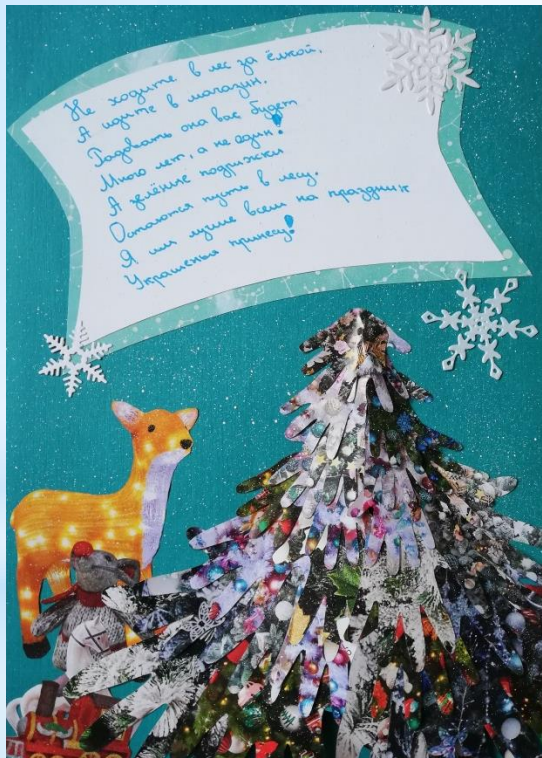 Не ходите в лес за ёлкой,
А идите в магазин.
Радовать она вас будет
Много лет, а не один!
А зелёные подружки
Остаются пусть в лесу.
Я им лучше всем на праздник
Украшенья принесу!